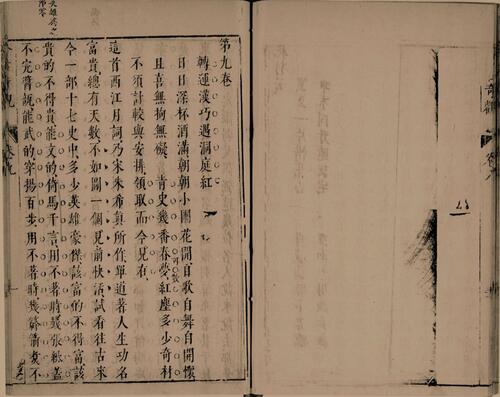 第九卷
轉運漢巧遇洞庭紅
日日深杯酒滿朝朝小圃花開自歌自舞自開懷
且喜無拘無礙 青史幾番春夢紅塵多少奇材
不須計較與安排領取而今見在
這首西江月詞乃宋朱希真所作單道著人生功名
富貴總有天數不如圖一個見前快活試看往古來
今一部十七史中多少英雄豪傑該富的不得富該
貴的不得貴能文的倚馬千言用不著時幾張紙蓋
不完醬瓿能武的穿楊百步用不著時幾簳箭煮不